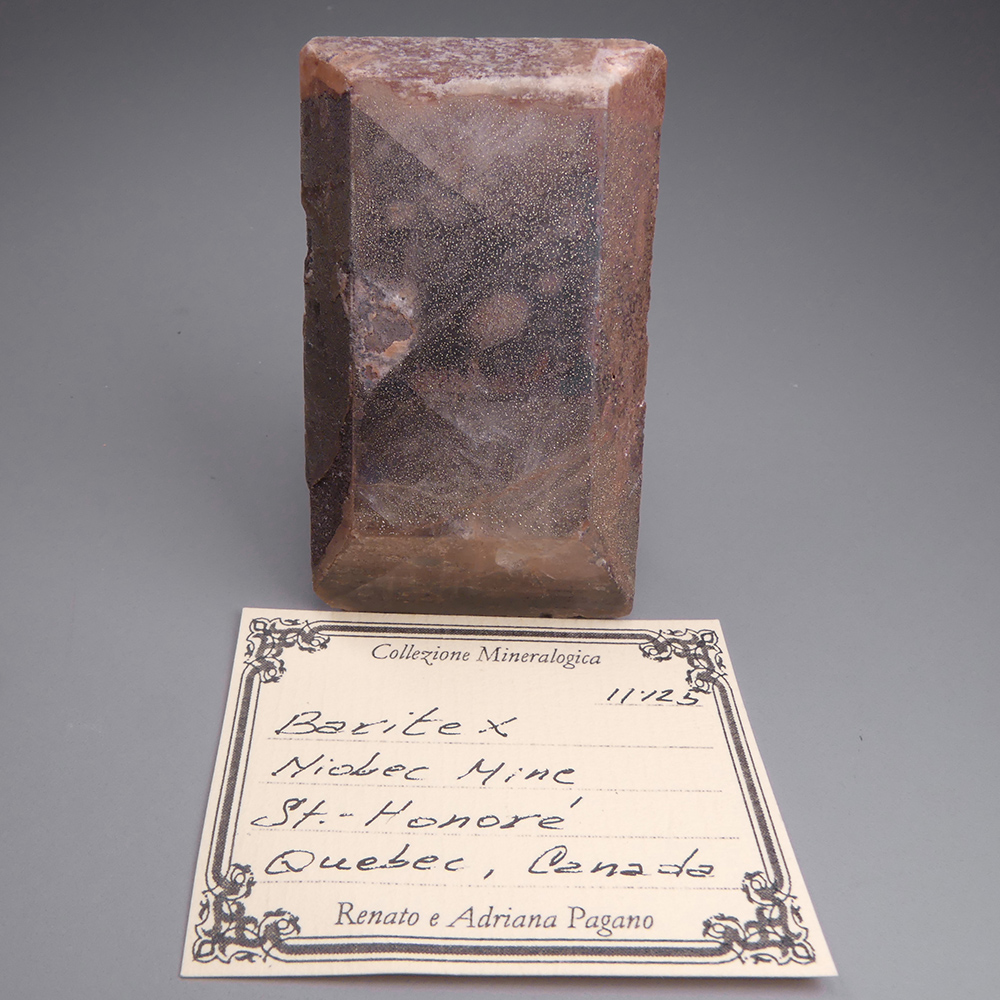 Collezione Mineralogica
11125
Barite x
Niobec Mine
St.-Honoré
Quebec, Canada
Renato e Adriana Pagano